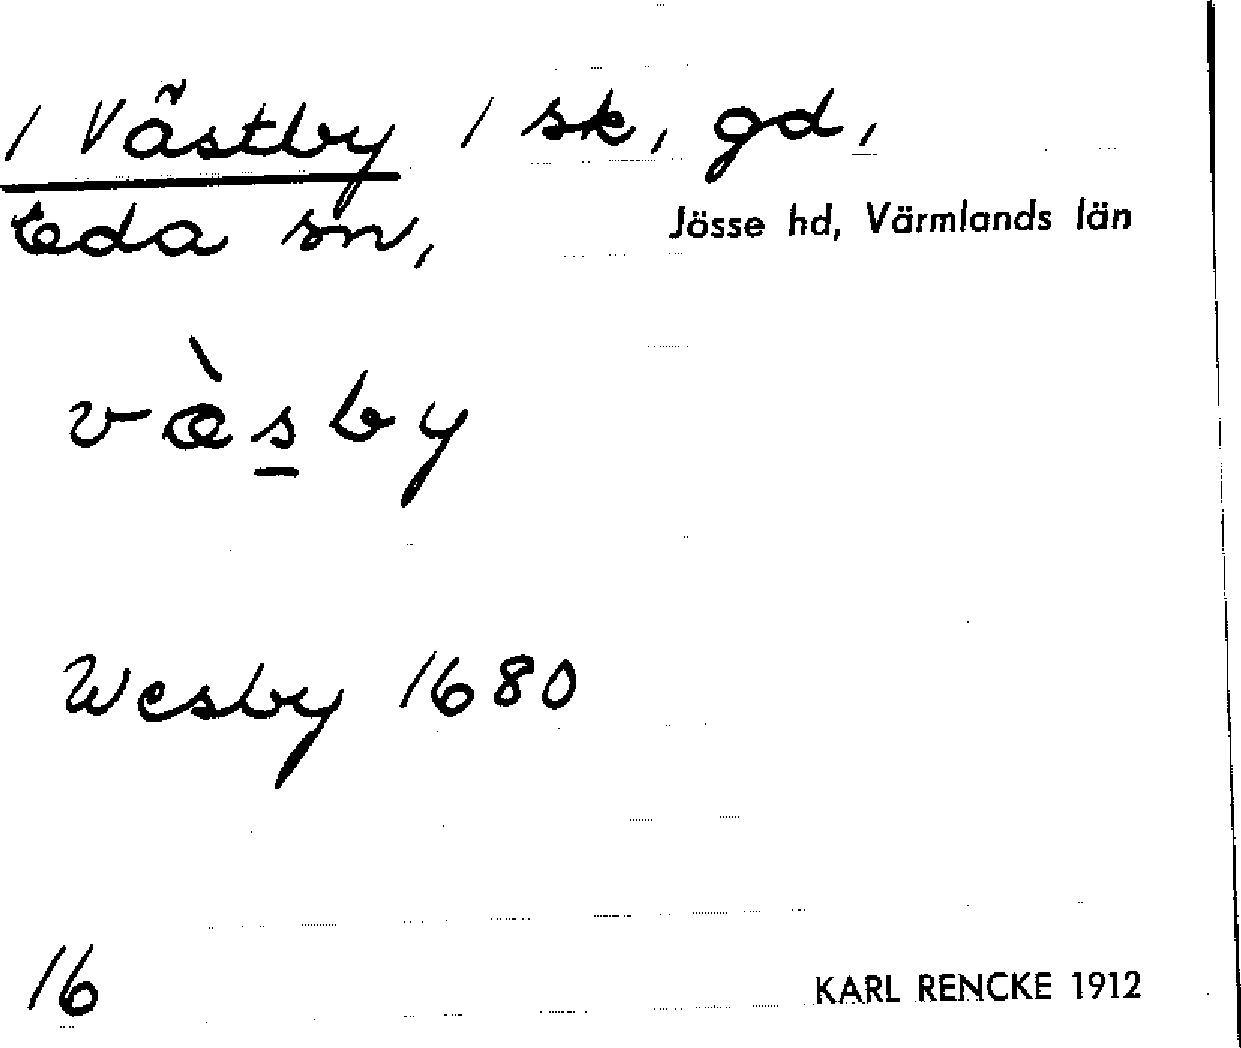 / Västby / sk, gd,
Eda sn, Jösse hd, Värmlands län
væ̀s̲by
Wesby 1680
16 KARL RENCKE 1912